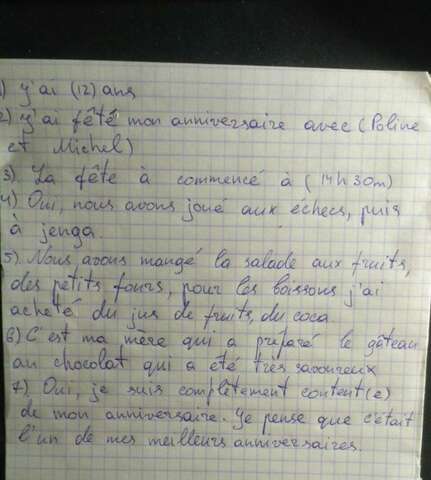 1) y'ai (12) ans
2) y'ai fêté mon anniversaire avec (Poline
et Michel)
3). La fête à commencé à (14h30m)
4) Oui, nous avons joué aux échecs, puis
à jenga.
5) Nous avons mangé la salade aux fruits,
des petits fours, pour les boissons j'ai
acheté du jus de fruits, du coca.
6) C'est ma mère qui a préparé le gâteau
au chocolat qui a été très savoureux
7). Oui, je suis complètement content(e)
de mon anniversaire. Je pense que c'était
l'un de mes meilleurs anniversaires.